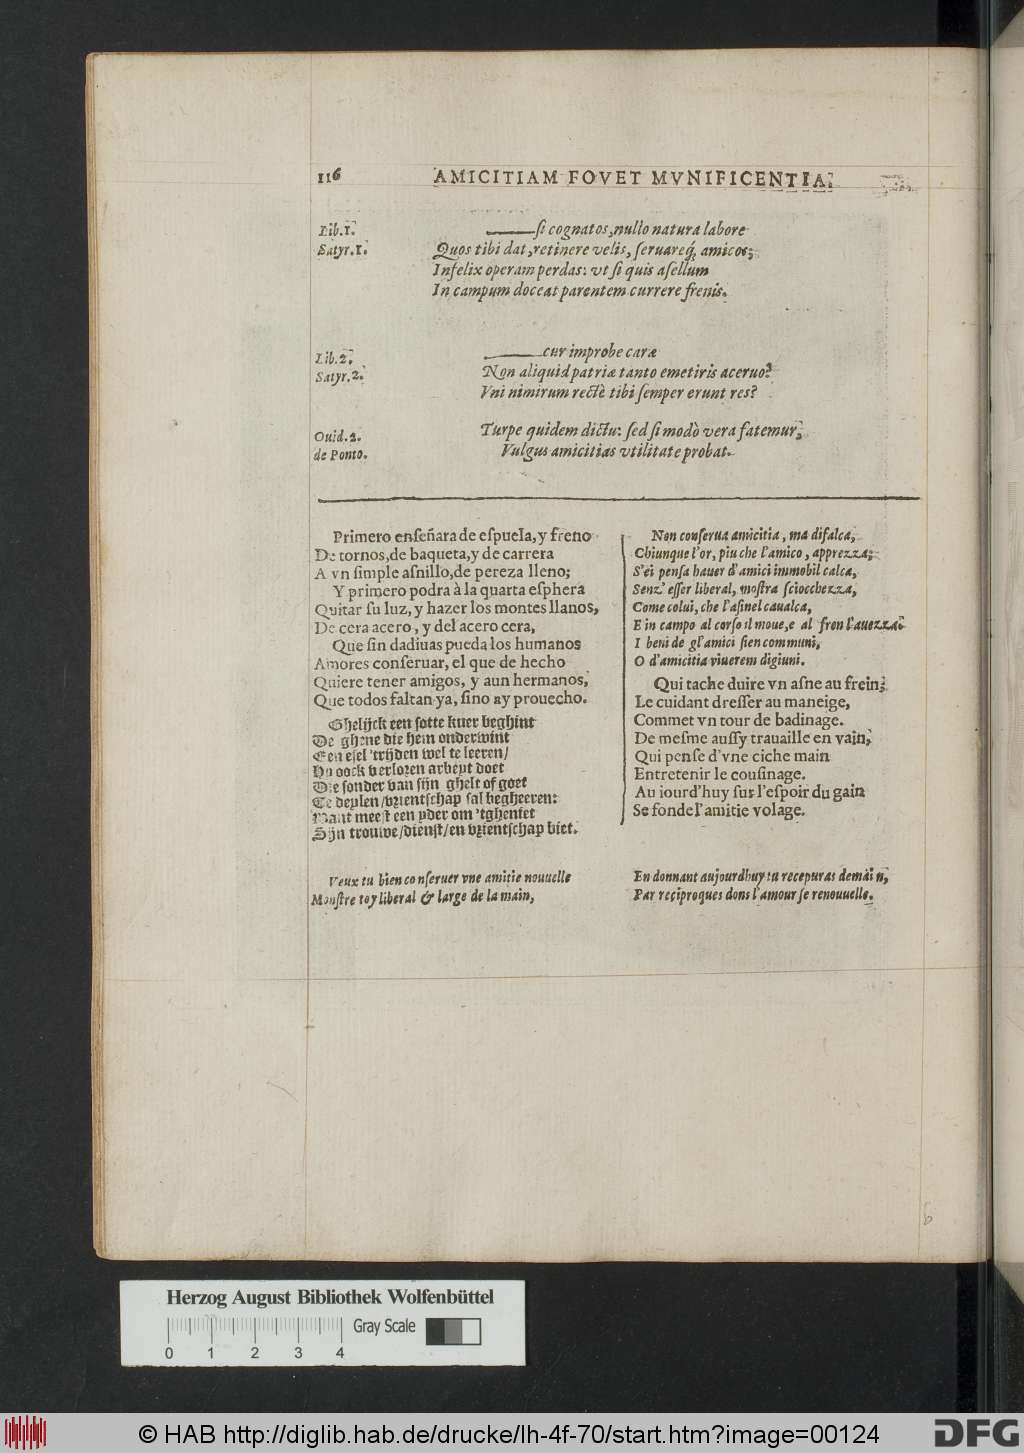 116 AMICITIAM FOVET MVNIFICENTIA.
Lib. 1. ——ſi cognatos, nullo natura labore
Satyr. 1. Quos tibi dat, retinere velis, ſeruareq́, amicos;
Infelix operam perdas: vt ſi quis aſellum
In campum doceat parentem currere frenis.
Lib. 2. ——cur improbe caræ
Satyr. 2. Non aliquid patriæ tanto emetiris aceruo?
Vni nimirum rectè tibi ſemper erunt res?
Ouid. 2. Turpe quidem dictu: ſed ſi modò vera fatemur,
de Ponto. Vulgus amicitias vtilitate probat.
Primero enſeñara de eſpuela, y freno
De tornos, de baqueta, y de carrera
A vn ſimple aſnillo, de pereza lleno;
Y primero podra à la quarta eſphera
Quitar ſu luz, y hazer los montes llanos,
De cera acero, y del acero cera,
Que ſin dadiuas pueda los humanos
Amores conſeruar, el que de hecho
Quiere tener amigos, y aun hermanos,
Que todos faltan ya, ſino ay prouecho.
Ghelijck een ſotte kuer beghint
De ghene die hem onderwint
Een eſel 'trijden wel te leeren/
Hy oock verlozen arbeyt doet
Die ſonder van ſijn ghelt of goet
Te deylen/vrientſchap ſal begheeren:
Want meeſt een yder om 'tgheniet
Sijn trouwe/dienſt/en vrientſchap biet.
Non conſerua amicitia, ma difalca,
Chiunque l'or, piu che l'amico, apprezza;
S'ei penſa hauer d'amici immobil calca,
Senz' eſſer liberal, moſtra ſciocchezza,
Come colui, che l'aſinel caualca,
E in campo al corſo il moue, e al fren l'auezza:
I beni de gl'amici ſien communi,
O d'amicitia viuerem digiuni.
Qui tache duire vn aſne au frein,
Le cuidant dreſſer au maneige,
Commet vn tour de badinage.
De meſme auſſy trauaille en vain,
Qui penſe d'vne ciche main
Entretenir le couſinage.
Au iourd'huy ſur l'eſpoir du gain
Se fonde l'amitie volage.
Veux tu bien conſeruer vne amitie nouuelle
Monſtre toy liberal & large de la main,
En donnant aujourdhuy tu recepuras demain,
Par reciproques dons l'amour ſe renouuelle.
6
Herzog August Bibliothek Wolfenbüttel
Gray Scale
0 1 2 3 4
© HAB http://diglib.hab.de/drucke/lh-4f-70/start.htm?image=00124
DFG